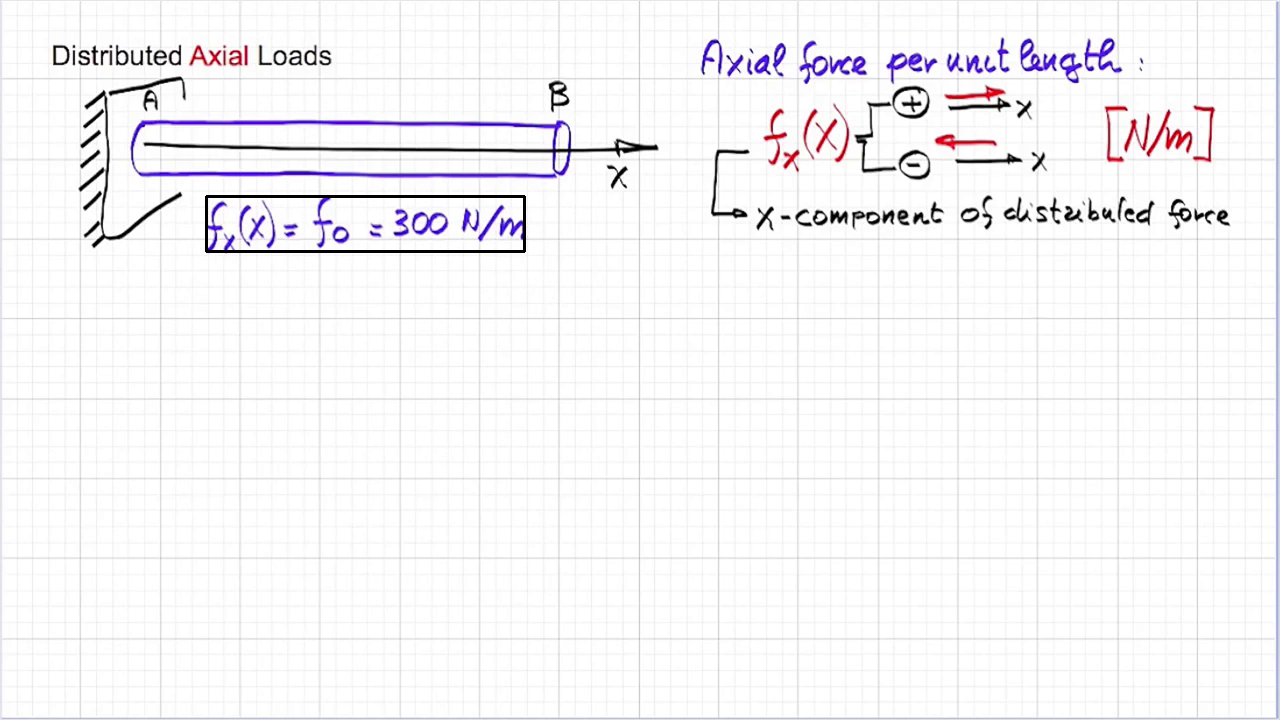 Distributed Axial Loads
A
B
x
fx(x) = f0 = 300 N/m
Axial force per unit length :
fx(x)
+
x
-
x
[N/m]
x-component of distributed force